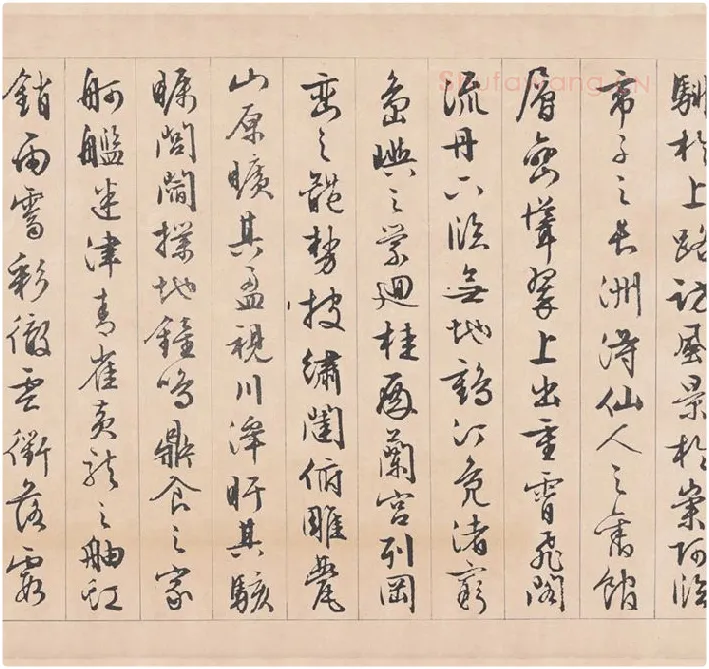 騑於上路訪風景於崇阿臨
帝子之長洲得仙人之舊館
層巒聳翠上出重霄飛閣
流丹下臨無地鶴汀鳧渚窮
島嶼之縈廻桂殿蘭宮列岡
巒之體勢披繡闥俯雕甍
山原曠其盈視川澤盱其駭
矚閭閻撲地鐘鳴鼎食之家
舸艦迷津青雀黃龍之舳虹
銷雨霽彩徹雲衢落霞
Shufawang.CN